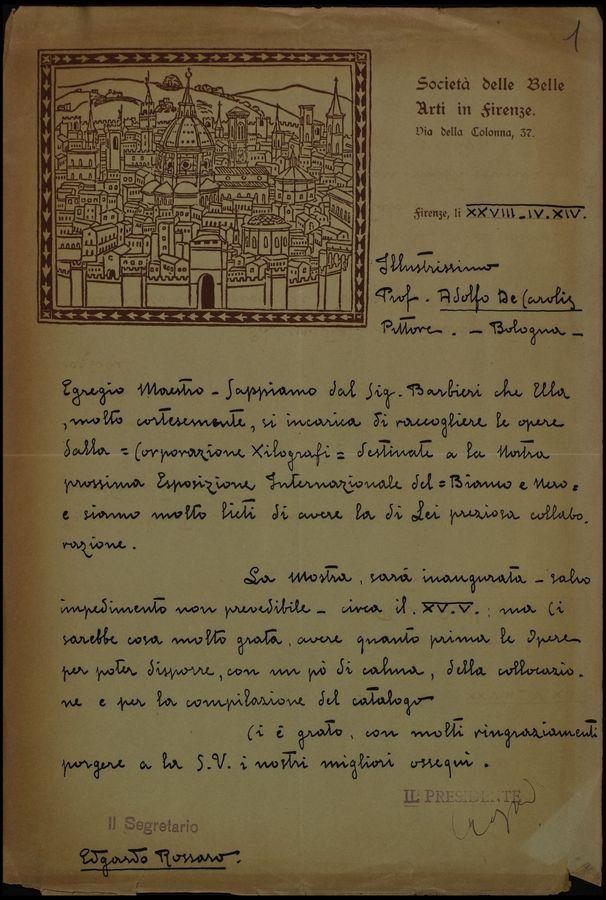 1
Società delle Belle
Arti in Firenze.
Via della Colonna, 37.
Firenze, li XXVIII-IV.XIV.
Illustrissimo
Prof. Adolfo De Carolis
Pittore. - Bologna -
Egregio Maestro - Sappiamo dal Sig. Barbieri che Ella
, molto cortesemente, si incarica di raccogliere le opere
dalla = Corporazione Xilografi = destinate a la Nostra
prossima Esposizione Internazionale del = Bianco e Nero =
e siamo molto lieti di avere la di Lei preziosa collabo.
razione.
La Mostra, sarà inaugurata - salvo
impedimento non prevedibile - circa il . XV.V. ; ma Ci
sarebbe cosa molto grata, avere quanto prima le Opere
per poter disporre, con un pò di calma, della collocazio.
ne e per la compilazione del catalogo
Ci è grato, con molti ringraziamenti
porgere a la S.V. i nostri migliori ossequi.
IL PRESIDENTE
Il Segretario
Edgardo Rossaro.